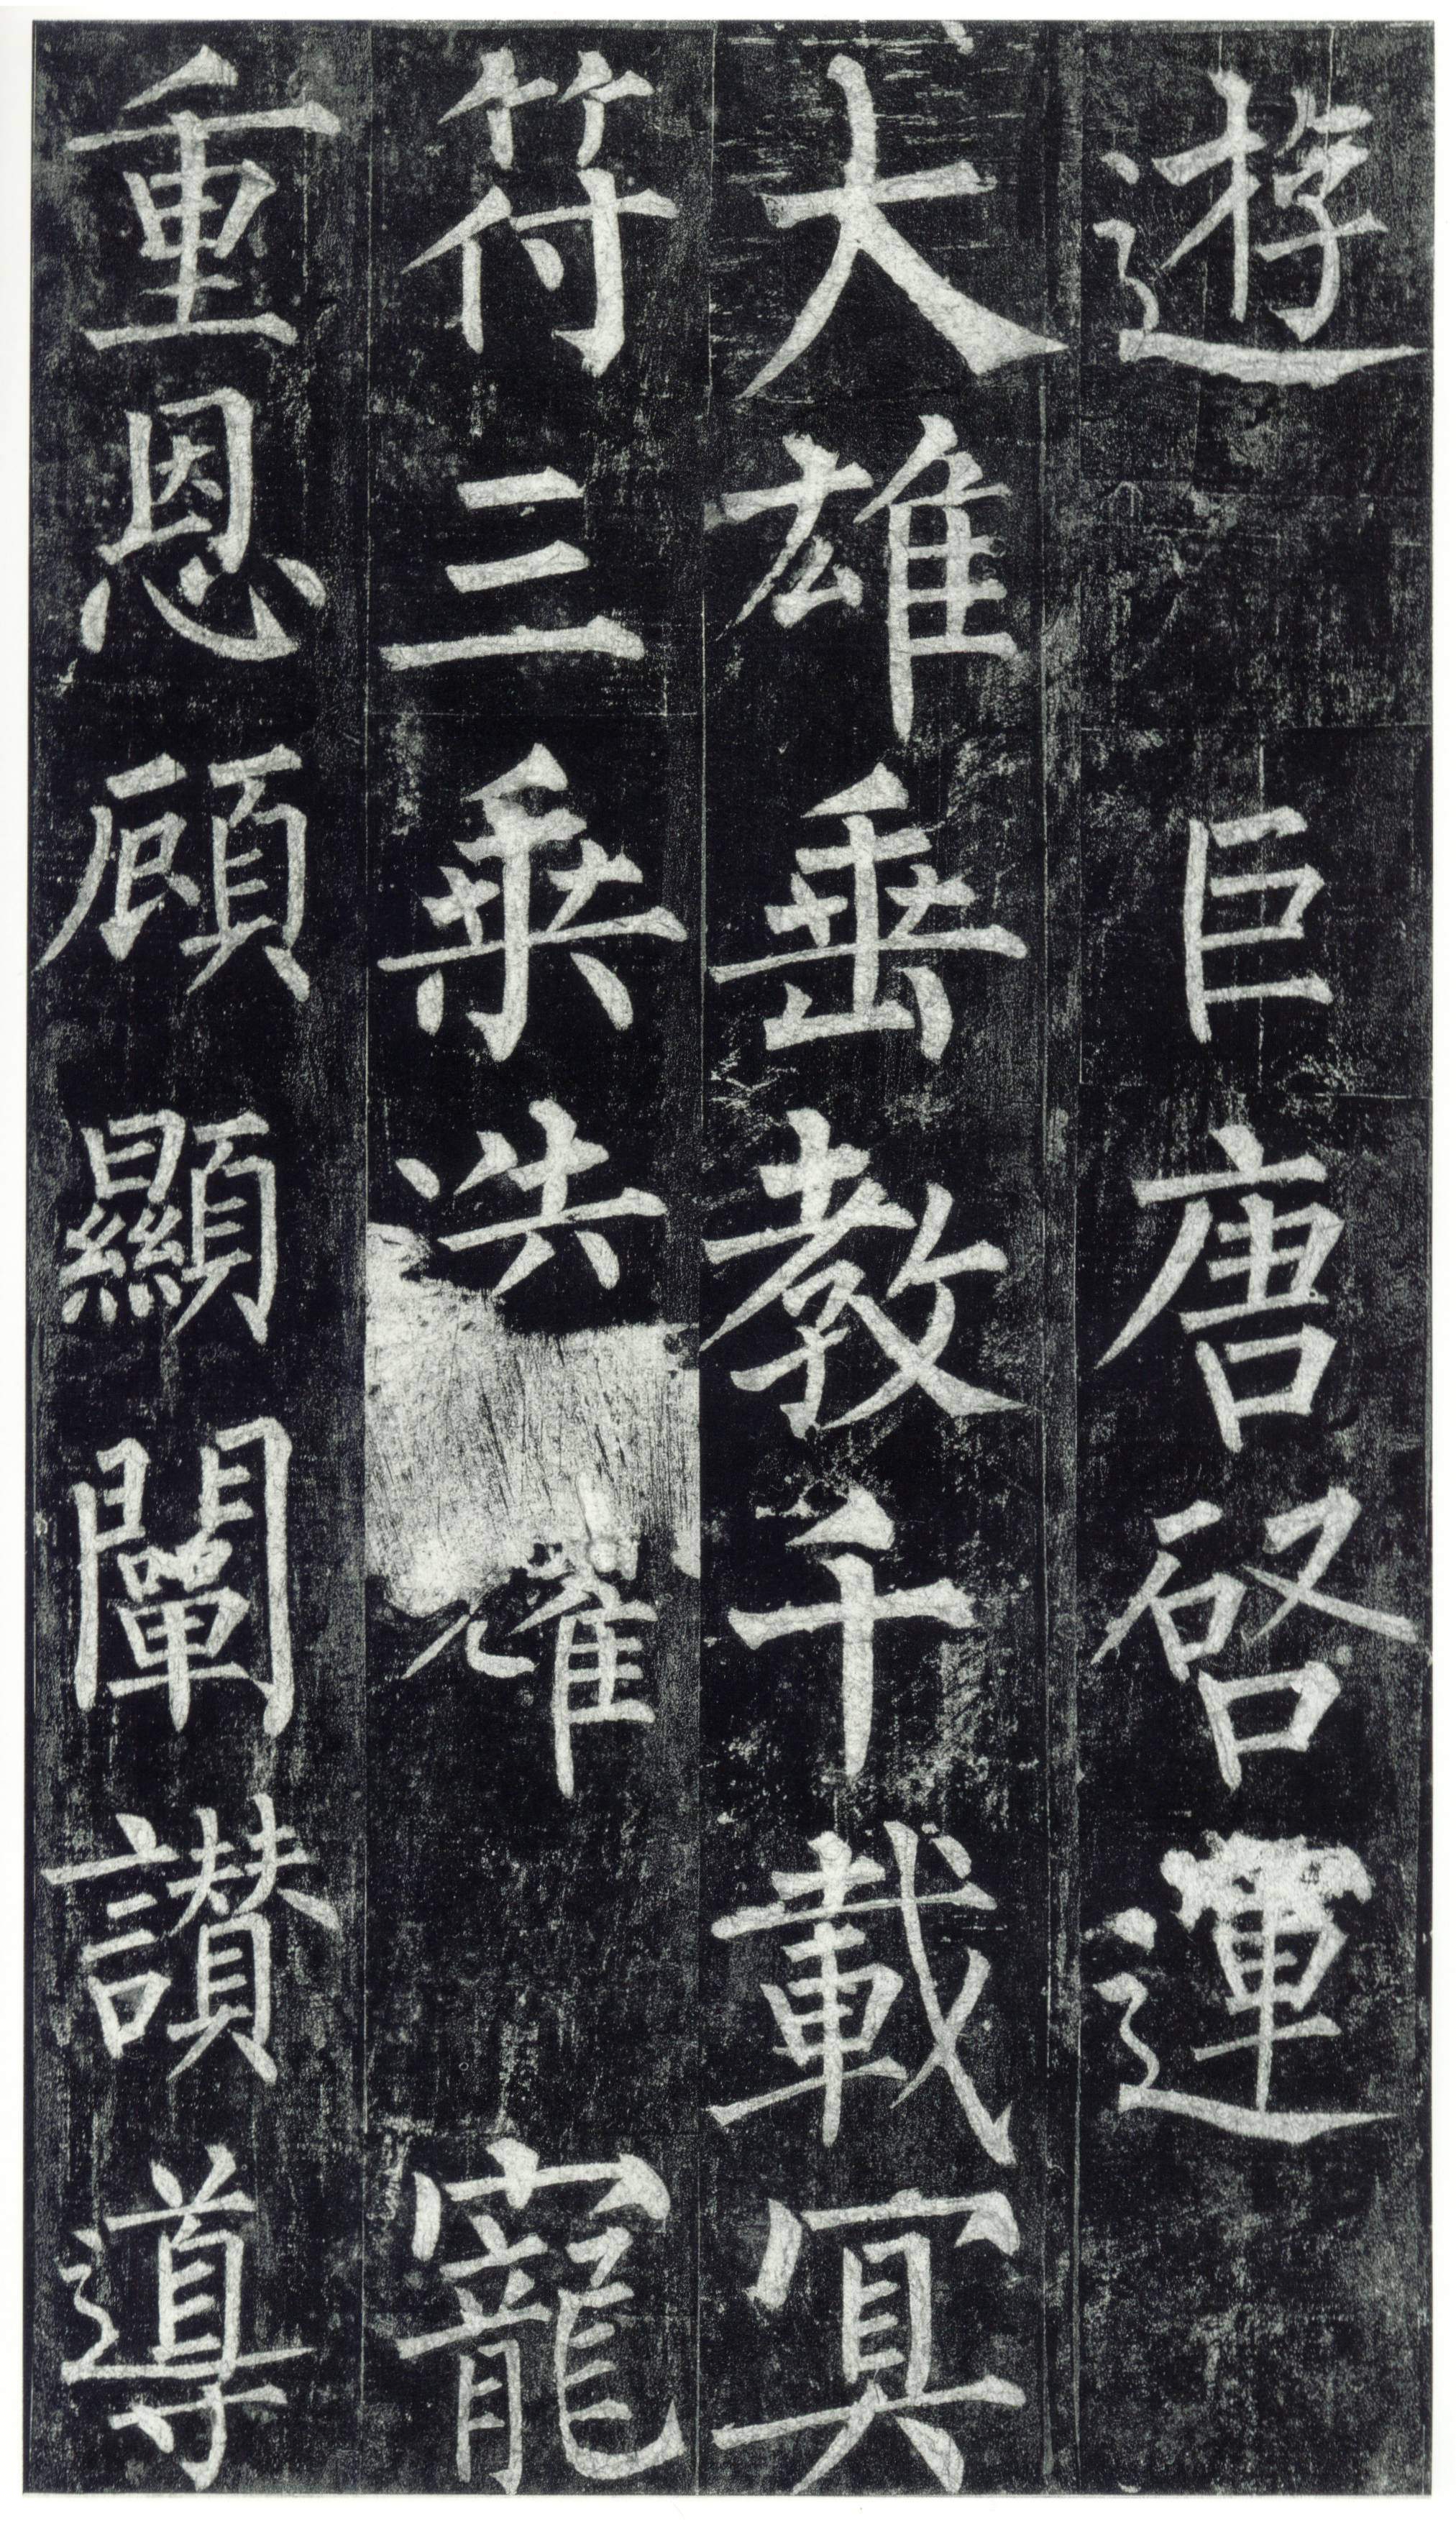 遊巨唐啓運
大雄垂教千載冥
符三乘迭耀寵
重恩顧顯闡讃導